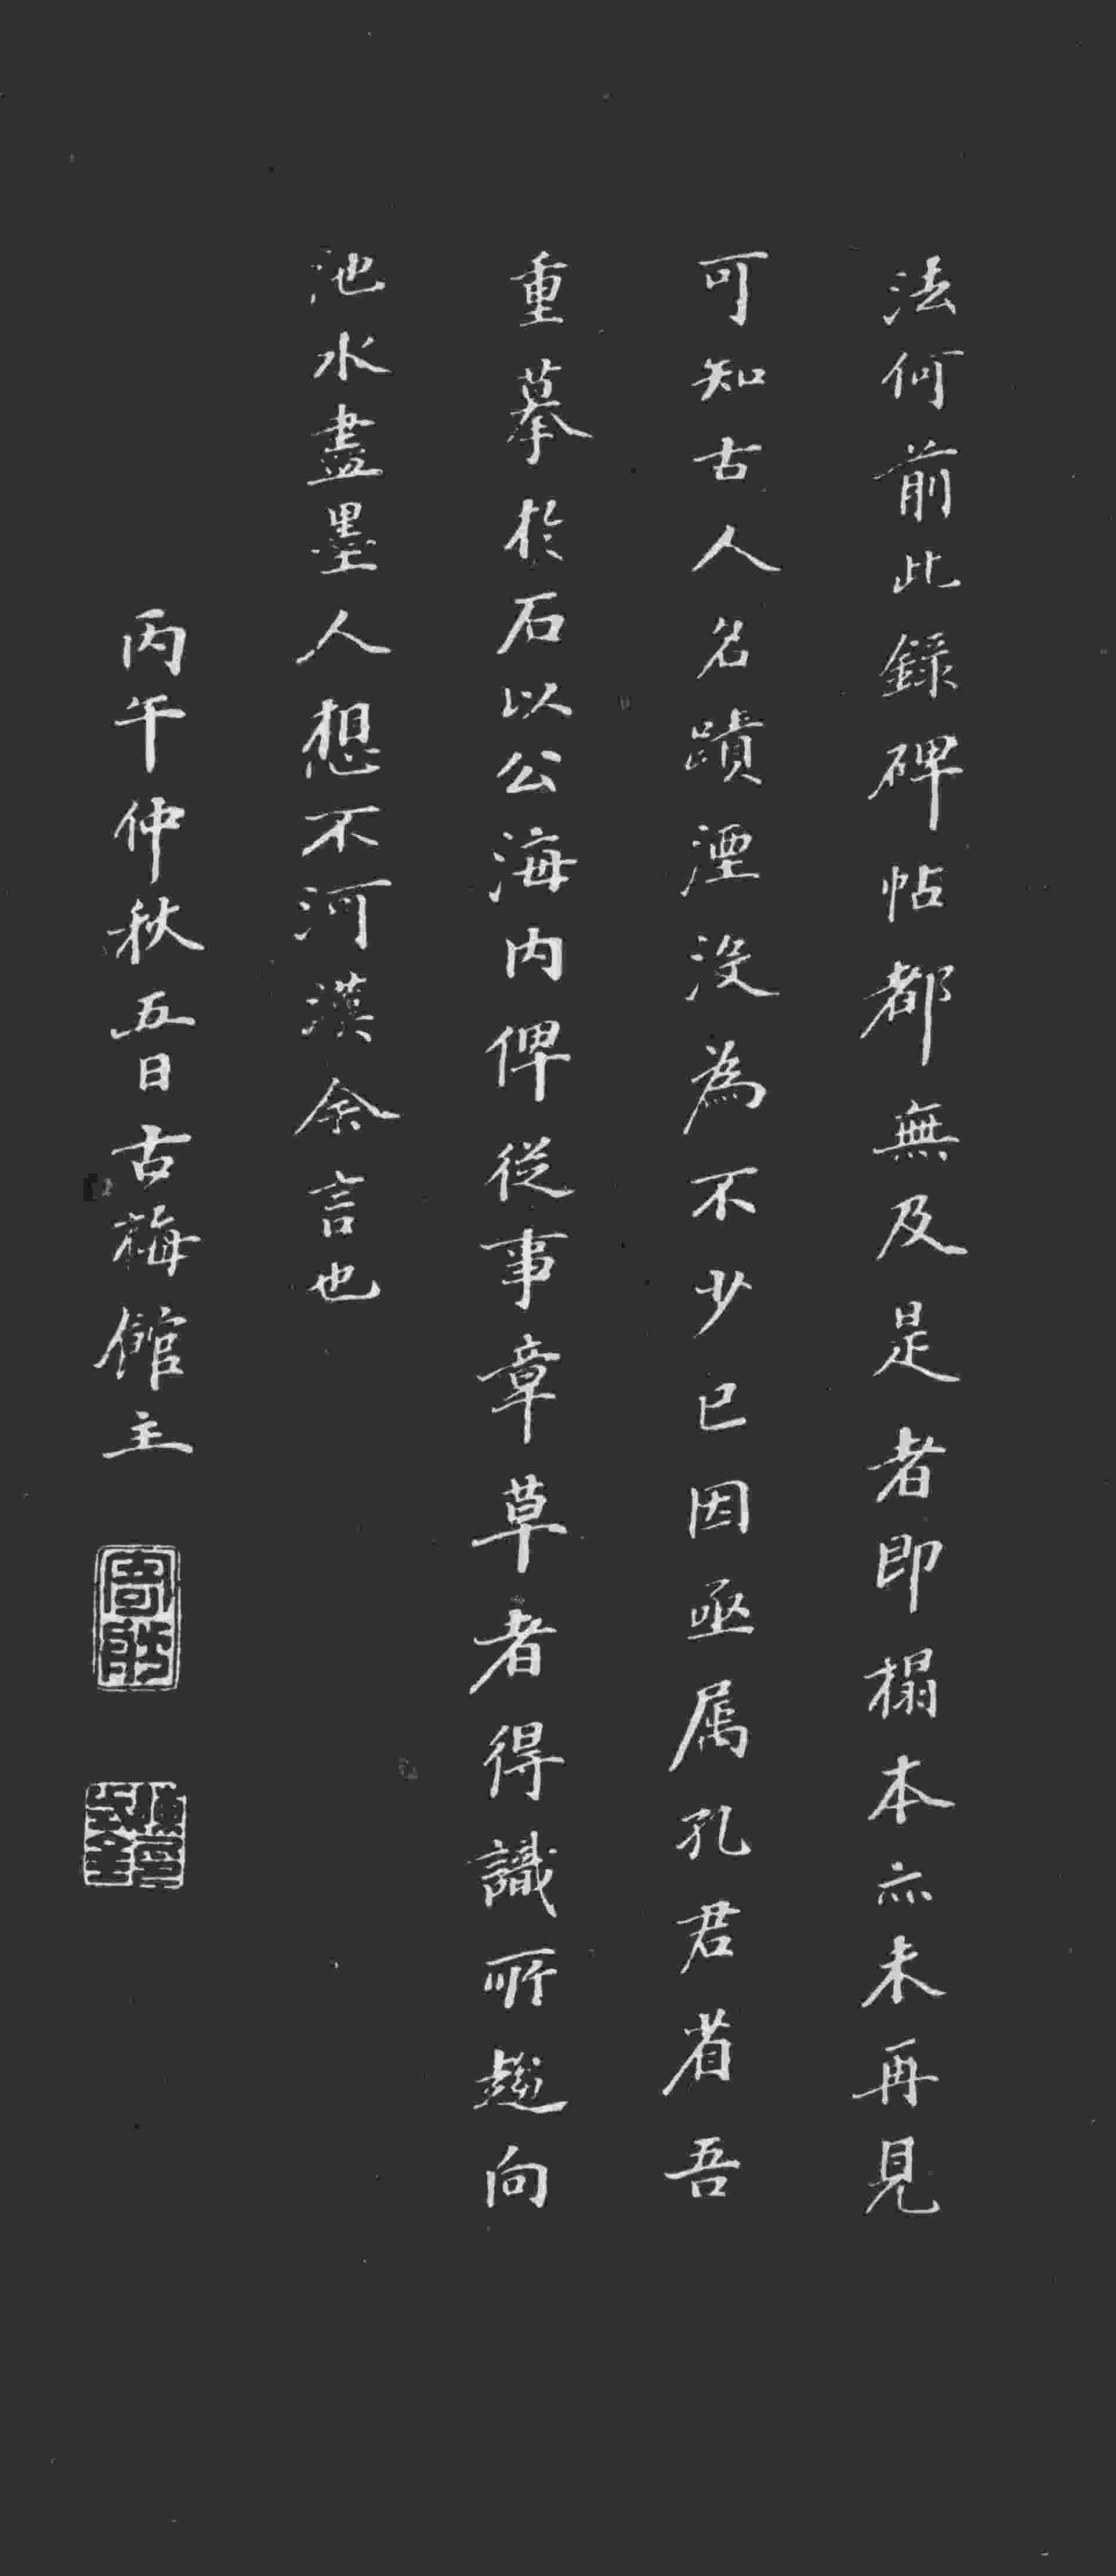 法何前此錄碑帖都無及是者即榻本亦未再見
可知古人名蹟湮没為不少已因亟属孔君省吾
重摹於石以公海内俾従事章草者得識所趨向
池水盡墨人想不河漢余言也
丙午仲秋五日古梅館主